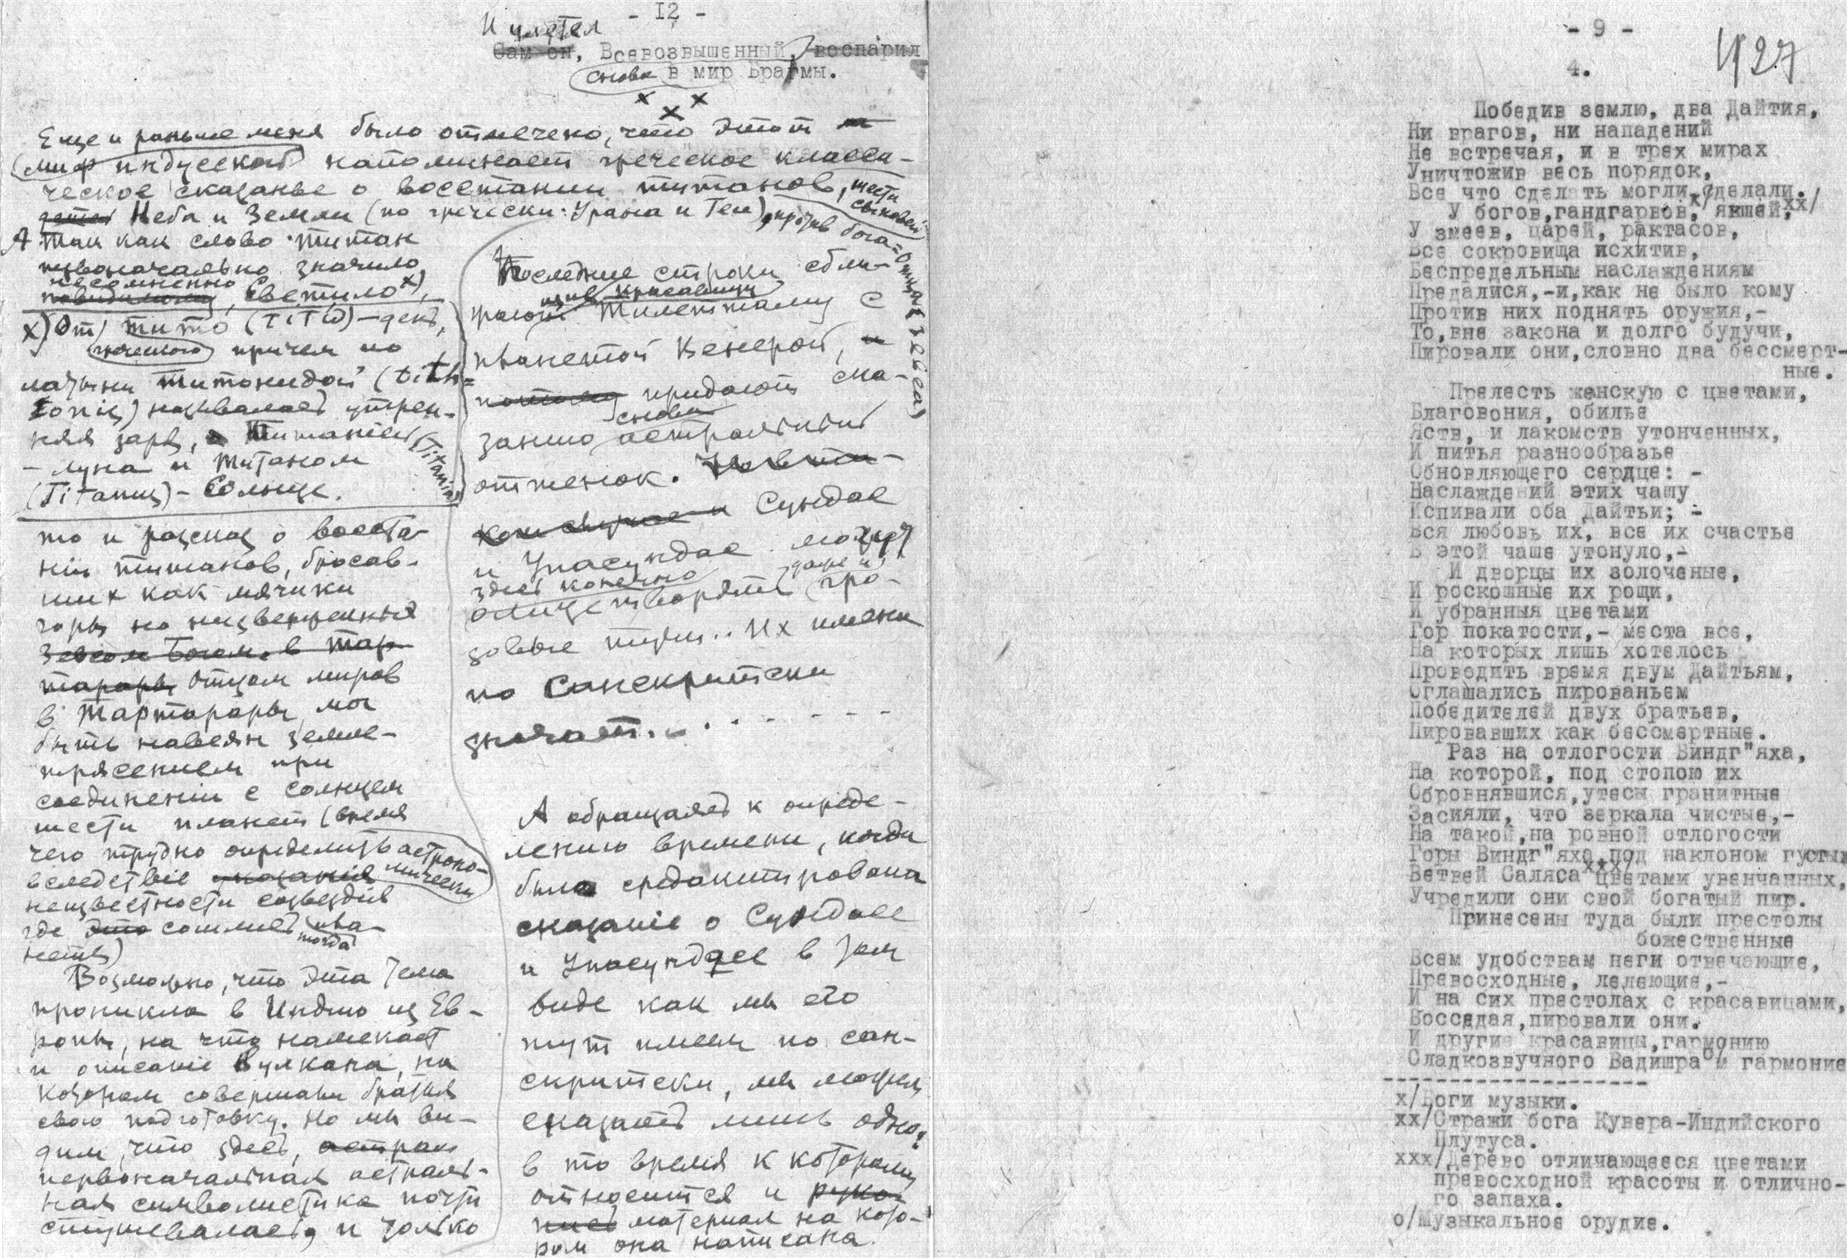 - 12 -
И улетел
Сам он, Всевозвышенный, воспарил
снова в мир Брагмы.
х х х
Еще и раньше меня было отмечено, что этот
миф индусский напоминает греческое класси-
ческое сказанье о восстании титанов, шести сыновей
Неба и Земли (по гречески: Урана и Геи), против бога-отца (Зевеса)
А так как слово титан
первоначально значило
несомненно светило х),
х) От тито (τιτώ) — день,
греческого причем по
латыни титонидой (tith-
onis) называлась утрен-
няя заря, Титанией (Titania)
- луна и Титаном
(Titanus) - Солнце.
то и рассказ о восста-
нии титанов, бросав-
ших как мячики
горы но низвергнутых
Зевсом Богом в Тар-
тарары Отцом миров
в Тартарары, мог
быть навеян земле-
трясением при
соединении с солнцем
шести планет (время
чего трудно определить астроно-
мически
вследствие указания
неизвестности созвездия
где это сошлись тогда пла-
неты)
Возможно, что эта тема
проникла в Индию из Ев-
ропы, на что намекает
и описание вулкана, на
котором совершали братья
свою подготовку. Но мы ви-
дим, что здесь, астрал
первоначальная астраль-
ная символистика почти
стушевалась, и только
Последние строки сбли-
жающие красавицу
Тилеттаму с
планетой Венерой,
потому придают ска-
занию снова астральный
оттенок.
Сундас
и Упасундас могут
здесь конечно даже и
олицетворять гро-
зовые тучи.. Их имена
по Санскритски
значат. . . . . . . . .
А обращаясь к опреде-
лению времени, когда
было средактировано
сказание о Сундасе
и Упасундасе в том
виде как мы его
тут имеем по сан-
скритски, мы можем
сказать лишь одно:
в то время к которому
относится и руко-
пись материал на кото-
ром она написана.
- 9 -
427
4.
Победив землю, два Дайтия,
Ни врагов, ни нападений
Не встречая, и в трех мирах
Уничтожив весь порядок,
Все что сделать могли, сделали.
У богов,гандгарвов,х/ якшей,хх/
У змеев, царей, рактасов,
Все сокровища исхитив,
Беспредельным наслаждениям
Предалися,-и,как не было кому
Против них поднять оружия,-
То,вне закона и долго будучи,
Пировали они,словно два бессмерт-
ные.
Прелесть женскую с цветами,
Благовония, обилье
Яств, и лакомств утонченных,
И питья разнообразье
Обновляющего сердце: -
Наслаждений этих чашу
Испивали оба Дайтьи; -
Вся любовь их, все их счастье
В этой чаше утонуло,-
И дворцы их золоченые,
И роскошные их рощи,
И убранныя цветами
Гор покатости,- места все,
На которых лишь хотелось
Проводить время двум Дайтьям,
Оглашались пированьем
Победителей двух братьев,
Пировавших как бессмертные.
Раз на отлогости Виндг"яха,
На которой, под стопою их
Обровнявшися,утесы гранитные
Засияли, что зеркала чистые,-
На такой,на ровной отлогости
Горы Виндг"яха,под наклоном густых
Ветвей Салясаххх/цветами увенчанных,
Учредили они свой богатый пир.
Принесены туда были престолы
божественные
Всем удобствам неги отвечающие,
Превосходные, лелеющие,-
И на сих престолах с красавицами,
Восседая,пировали они.
И другие красавицы,гармонию
Сладкозвучного Вадиштрао/м гармоние
х/Боги музыки.
хх/Стражи бога Кувера-Индийского
Плутуса.
ххх/Дерево отличающееся цветами
превосходной красоты и отлично-
го запаха.
о/Музыкальное орудие.